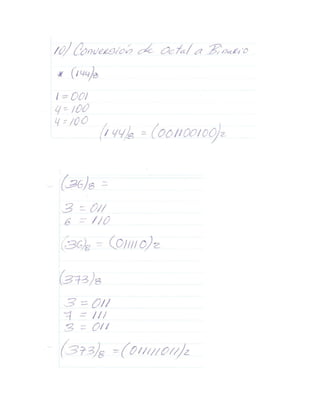 10) Conversión de Octal a Binario
* (144)8
1 = 001
4 = 100
4 = 100
(144)8 = (001100100)2
(36)8 =
3 = 011
6 = 110
(36)8 = (011110)2
(373)8
3 = 011
7 = 111
3 = 011
(373)8 = (011111011)2